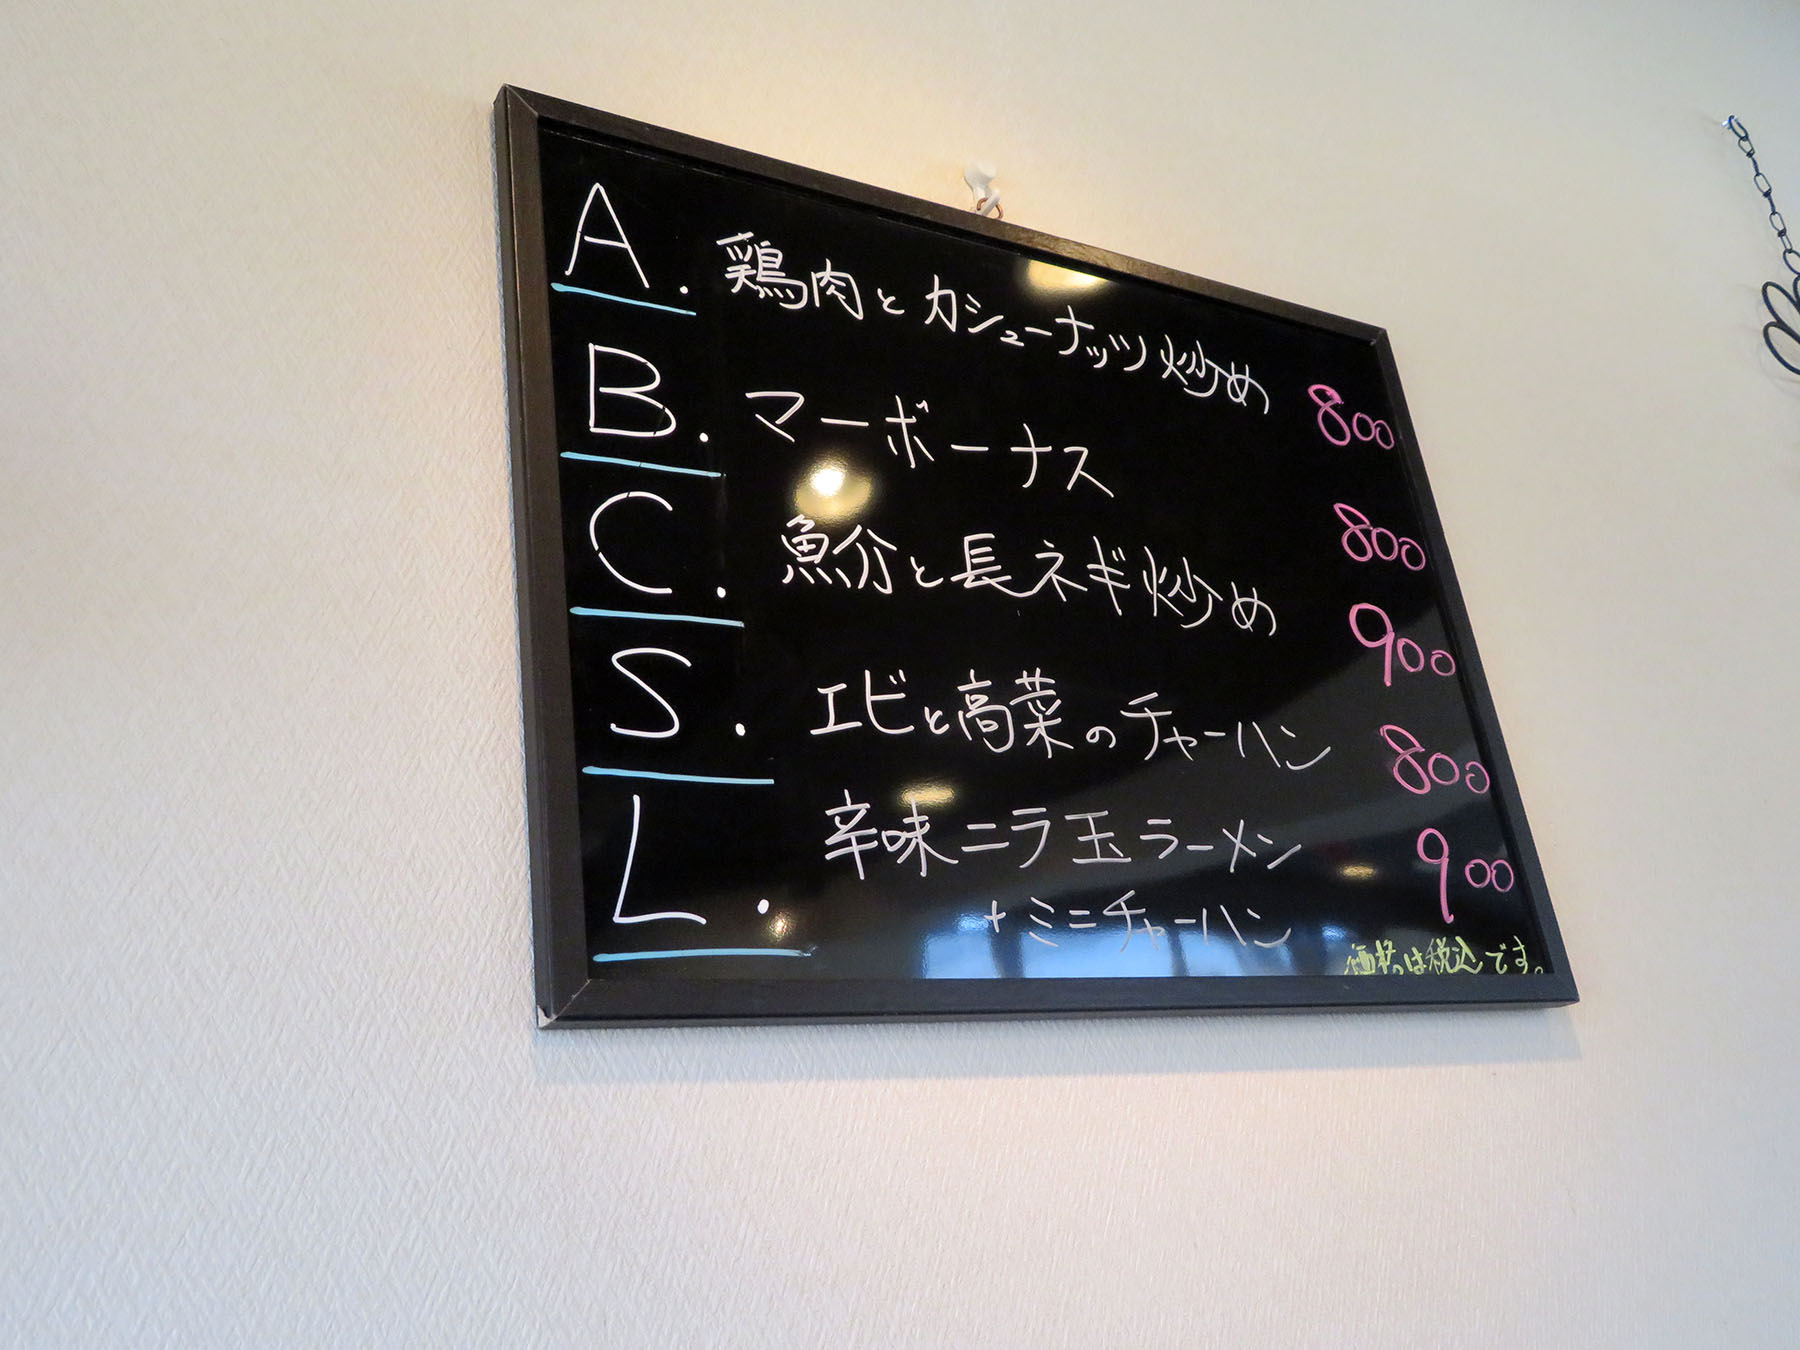 A. 鶏肉とカシューナッツ炒め 800
B. マーボーナス 800
C. 魚分と長ネギ炒め 900
S. エビと高菜のチャーハン 800
L. 辛味ニラ玉ラーメン 900
+ミニチャーハン
価格は税込です。